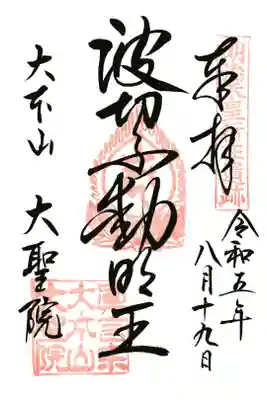 奉拝
令和五年
八月十九日
波切不動明王
大本山 大聖院
大本山
大聖院